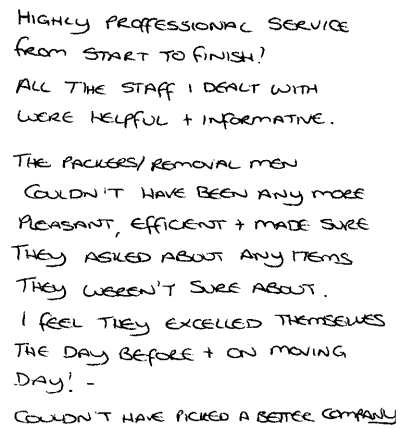 HIGHLY PROFFESSIONAL SERVICE
from START TO FINISH!
ALL THE STAFF I DEALT WITH
WERE HELPFUL + INFORMATIVE.
THE PACKERS/REMOVAL MEN
COULDN'T HAVE BEEN ANY MORE
PLEASANT, EFFICIENT + MADE SURE
THEY ASKED ABOUT ANY ITEMS
THEY WEREN'T SURE ABOUT.
I FEEL THEY EXCELLED THEMSELVES
THE DAY BEFORE + ON MOVING
DAY! -
COULDN'T HAVE PICKED A BETTER COMPANY